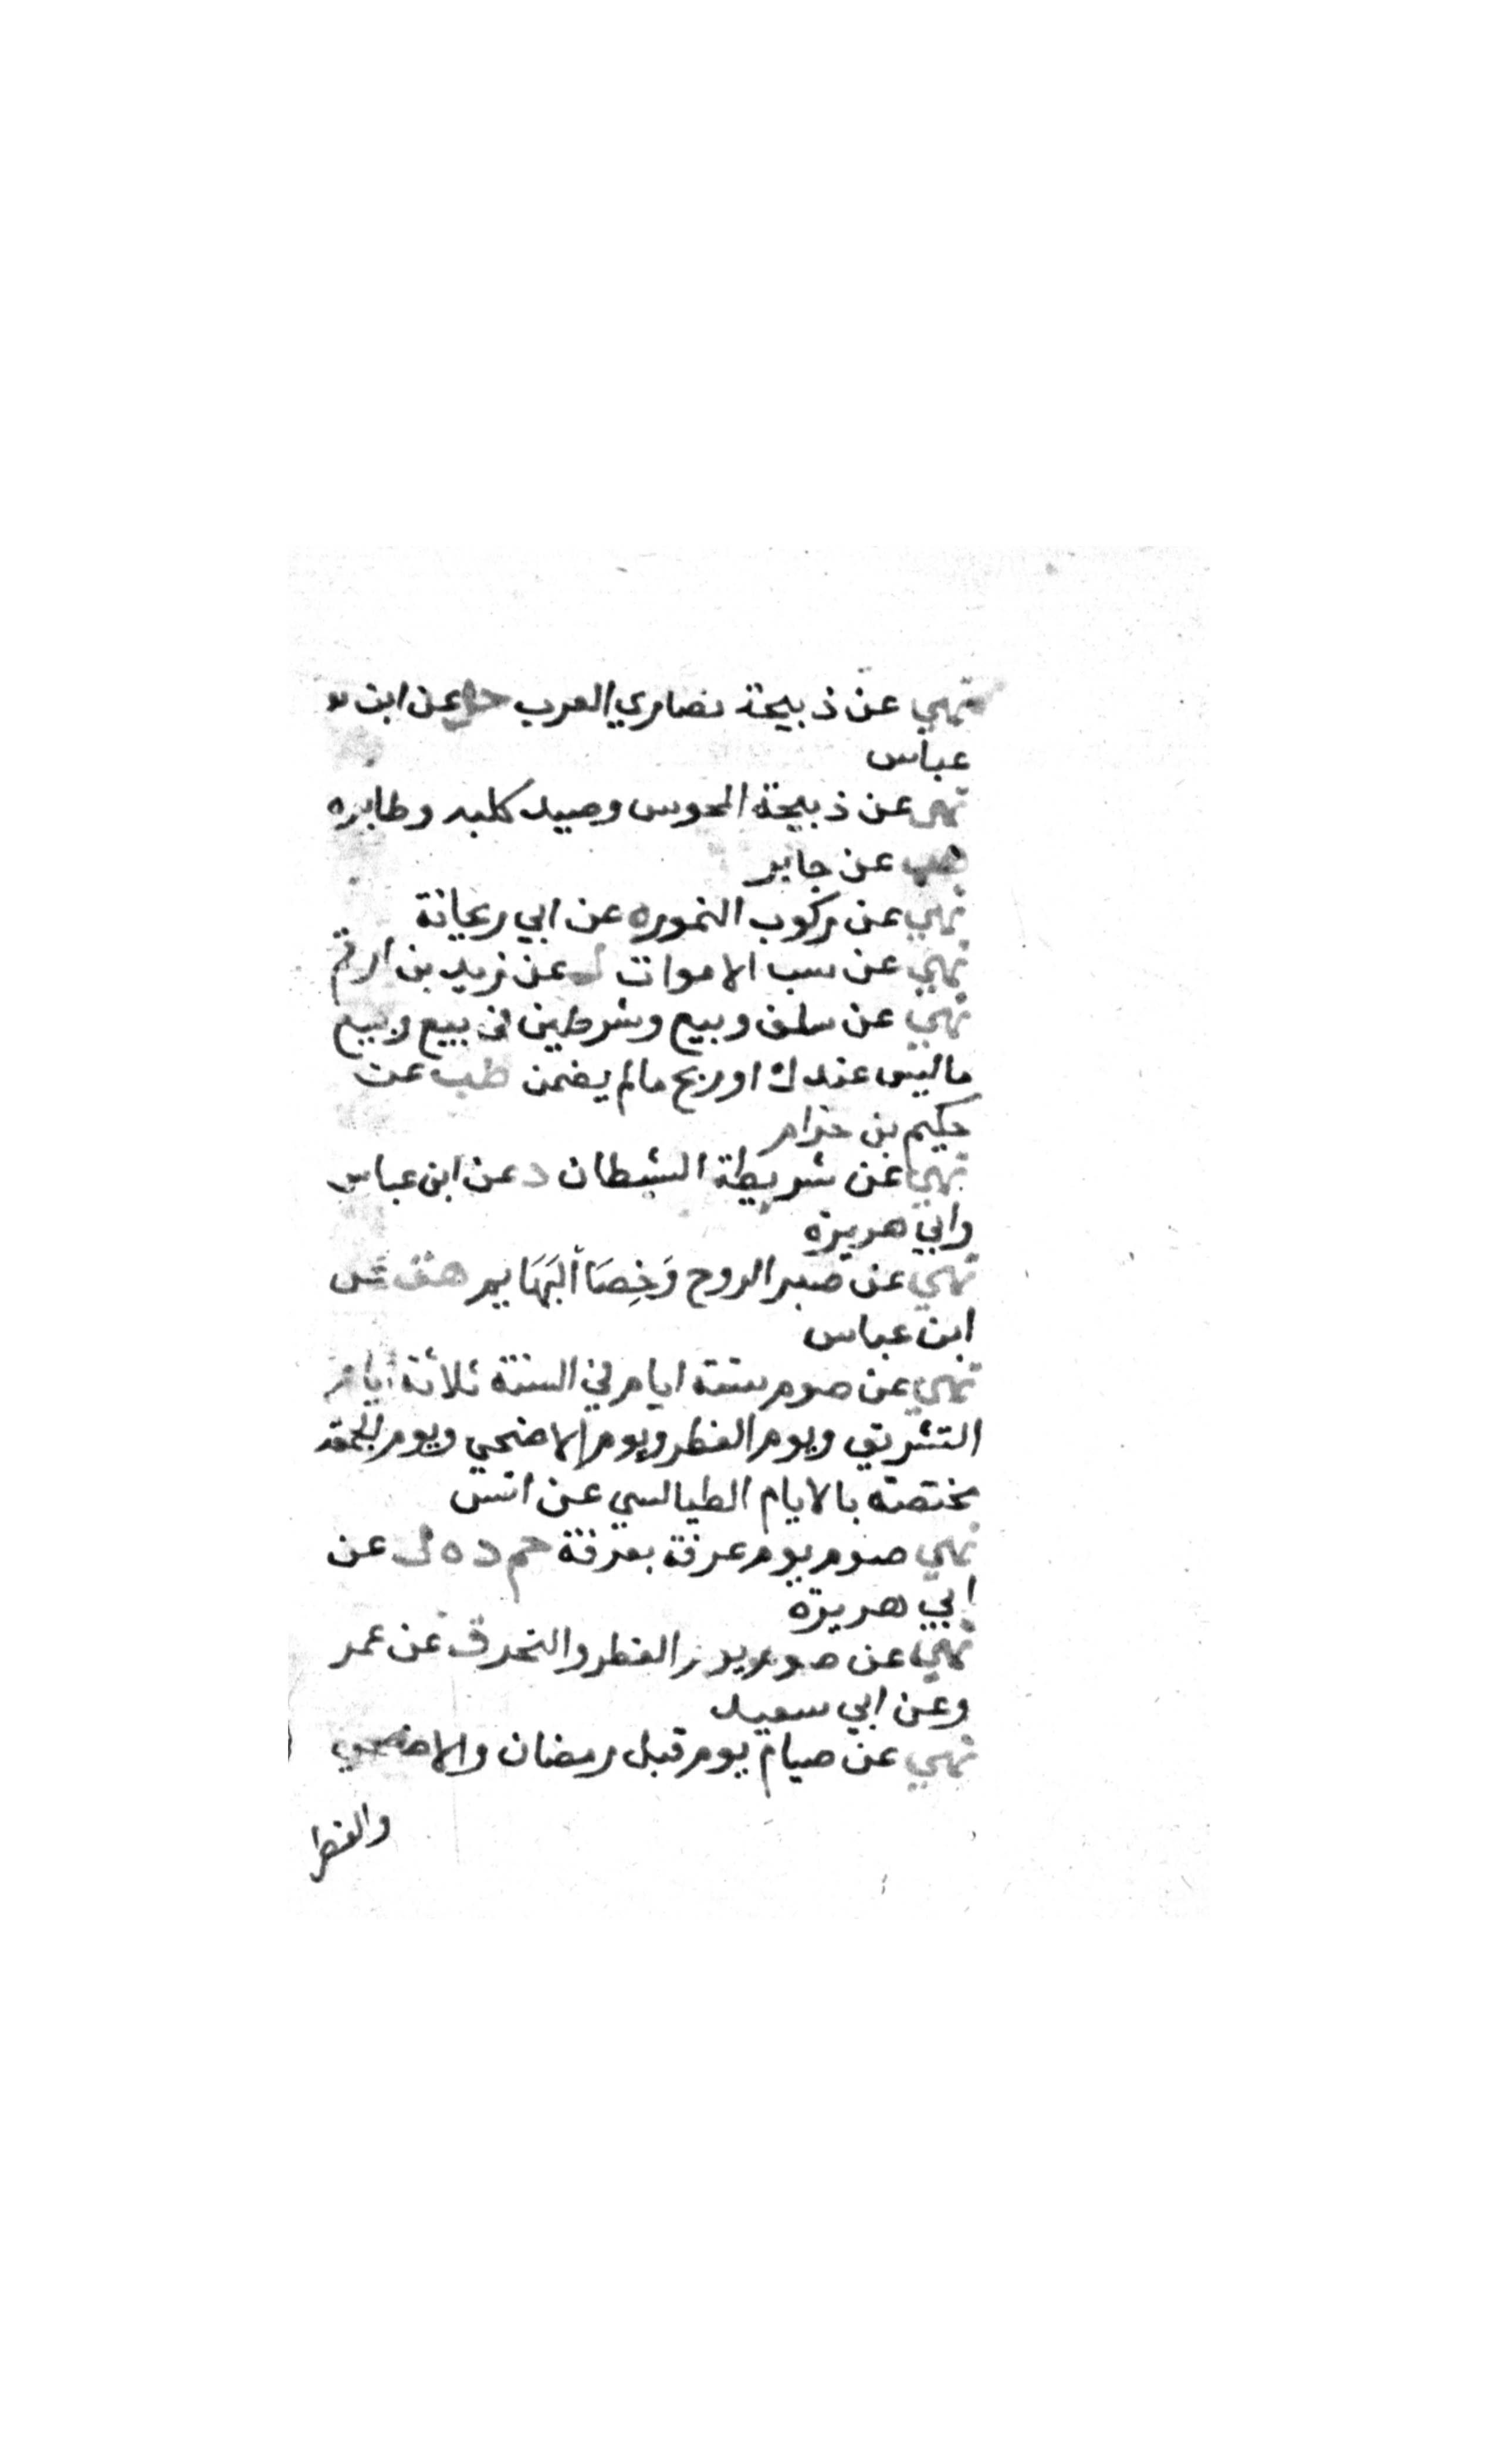 نهي عن ذبيحة نصاري العرب حل عن ابن
عباس
نهى عن ذبيحة المجوس وصيد كلبه وطايره
عن جابر
نهي عن ركوب النموره عن ابي ريحانة
نهي عن سب الاموات ك عن زيد بن ارقم
نهي عن سلف وبيع وشرطين في بيع وبيع
ماليس عندك اوربح مالم يضمن طب عن
حكيم بن حزام
نهي عن شريطة الشيطان د عن ابن عباس
وابي هريرة
نهي عن صبر الروح وَخِصَاأ البَهَايم هق عن
ابن عباس
نهي عن صوم ستة ايام في السنة ثلاثة أيام
التشريق ويوم الفطر ويوم الاضحي ويوم الجمعة
مختصة بالايام الطيالسي عن انس
نهي صوم يوم عرفة بعرفة حم د ه ك عن
ابي هريرة
نهي عن صوم يوم الفطر والنحر ق عن عمر
وعن ابي سعيد
نهي عن صيام يوم قبل رمضان والاضحي
والفطر